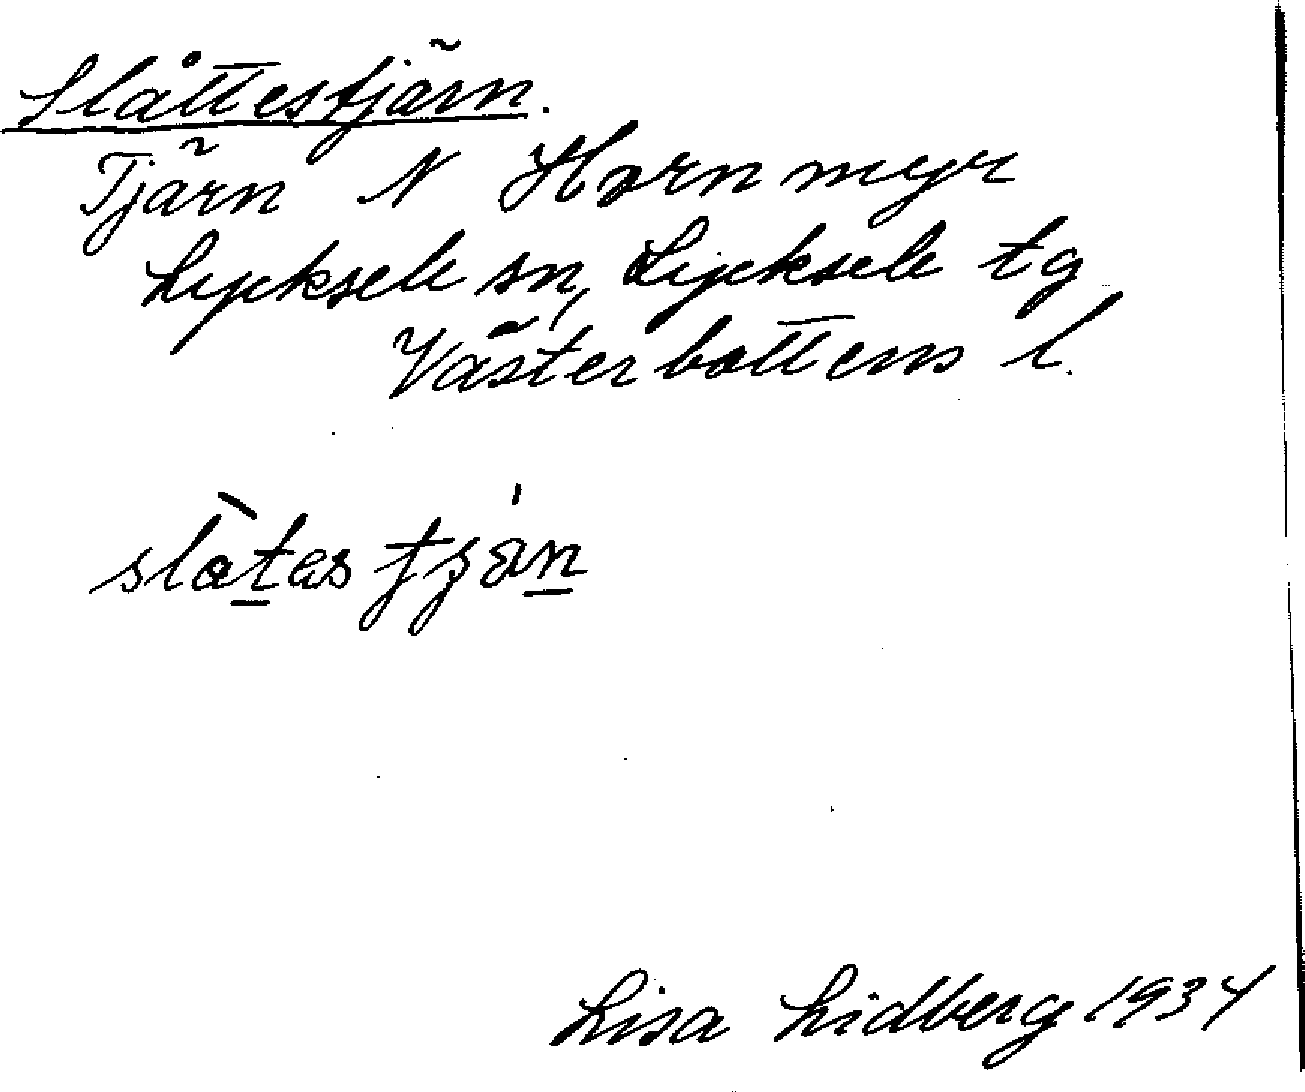 Slåttestjärn.
Tjärn N Hornmyr
Lycksele sn, Lycksele tg
Västerbottens l.
slàtas tjän
Lisa Lidberg 1934